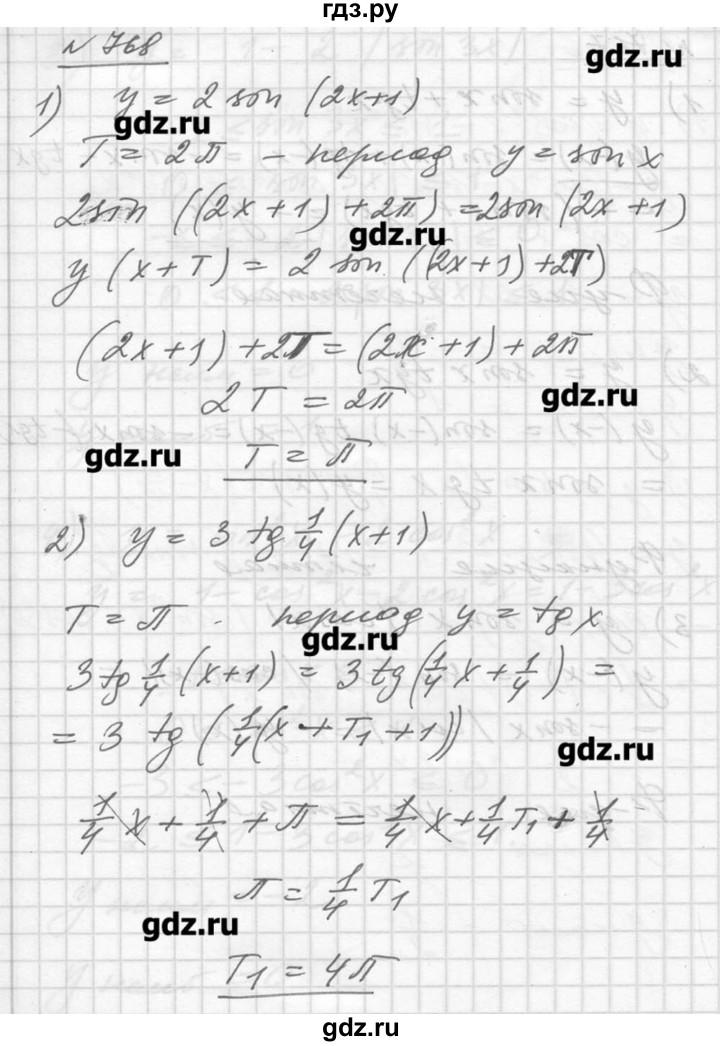 гдз.ру
№ 768
gdz.ru
1) y = 2 sin (2x+1)
gdz.ru
T = 2π – период y = sin x
2sin ((2x+1)+2π) = 2sin (2x+1)
gdz.ru
y (x+T) = 2 sin ((2x+1)+2T)
(2x+1)+2T = (2x+1)+2π
2T = 2π
gdz.ru
gdz.ru
T = π
2) y = 3 tg 1/4 (x+1)
T = π. период y = tg x
gdz.ru
3 tg 1/4 (x+1) = 3 tg (1/4 x + 1/4) =
= 3 tg (1/4 (x + T1 + 1))
gdz.ru
1/4 x + 1/4 + π = 1/4 x + 1/4 T1 + 1/4
π = 1/4 T1
gdz.ru
T1 = 4π
gdz.ru